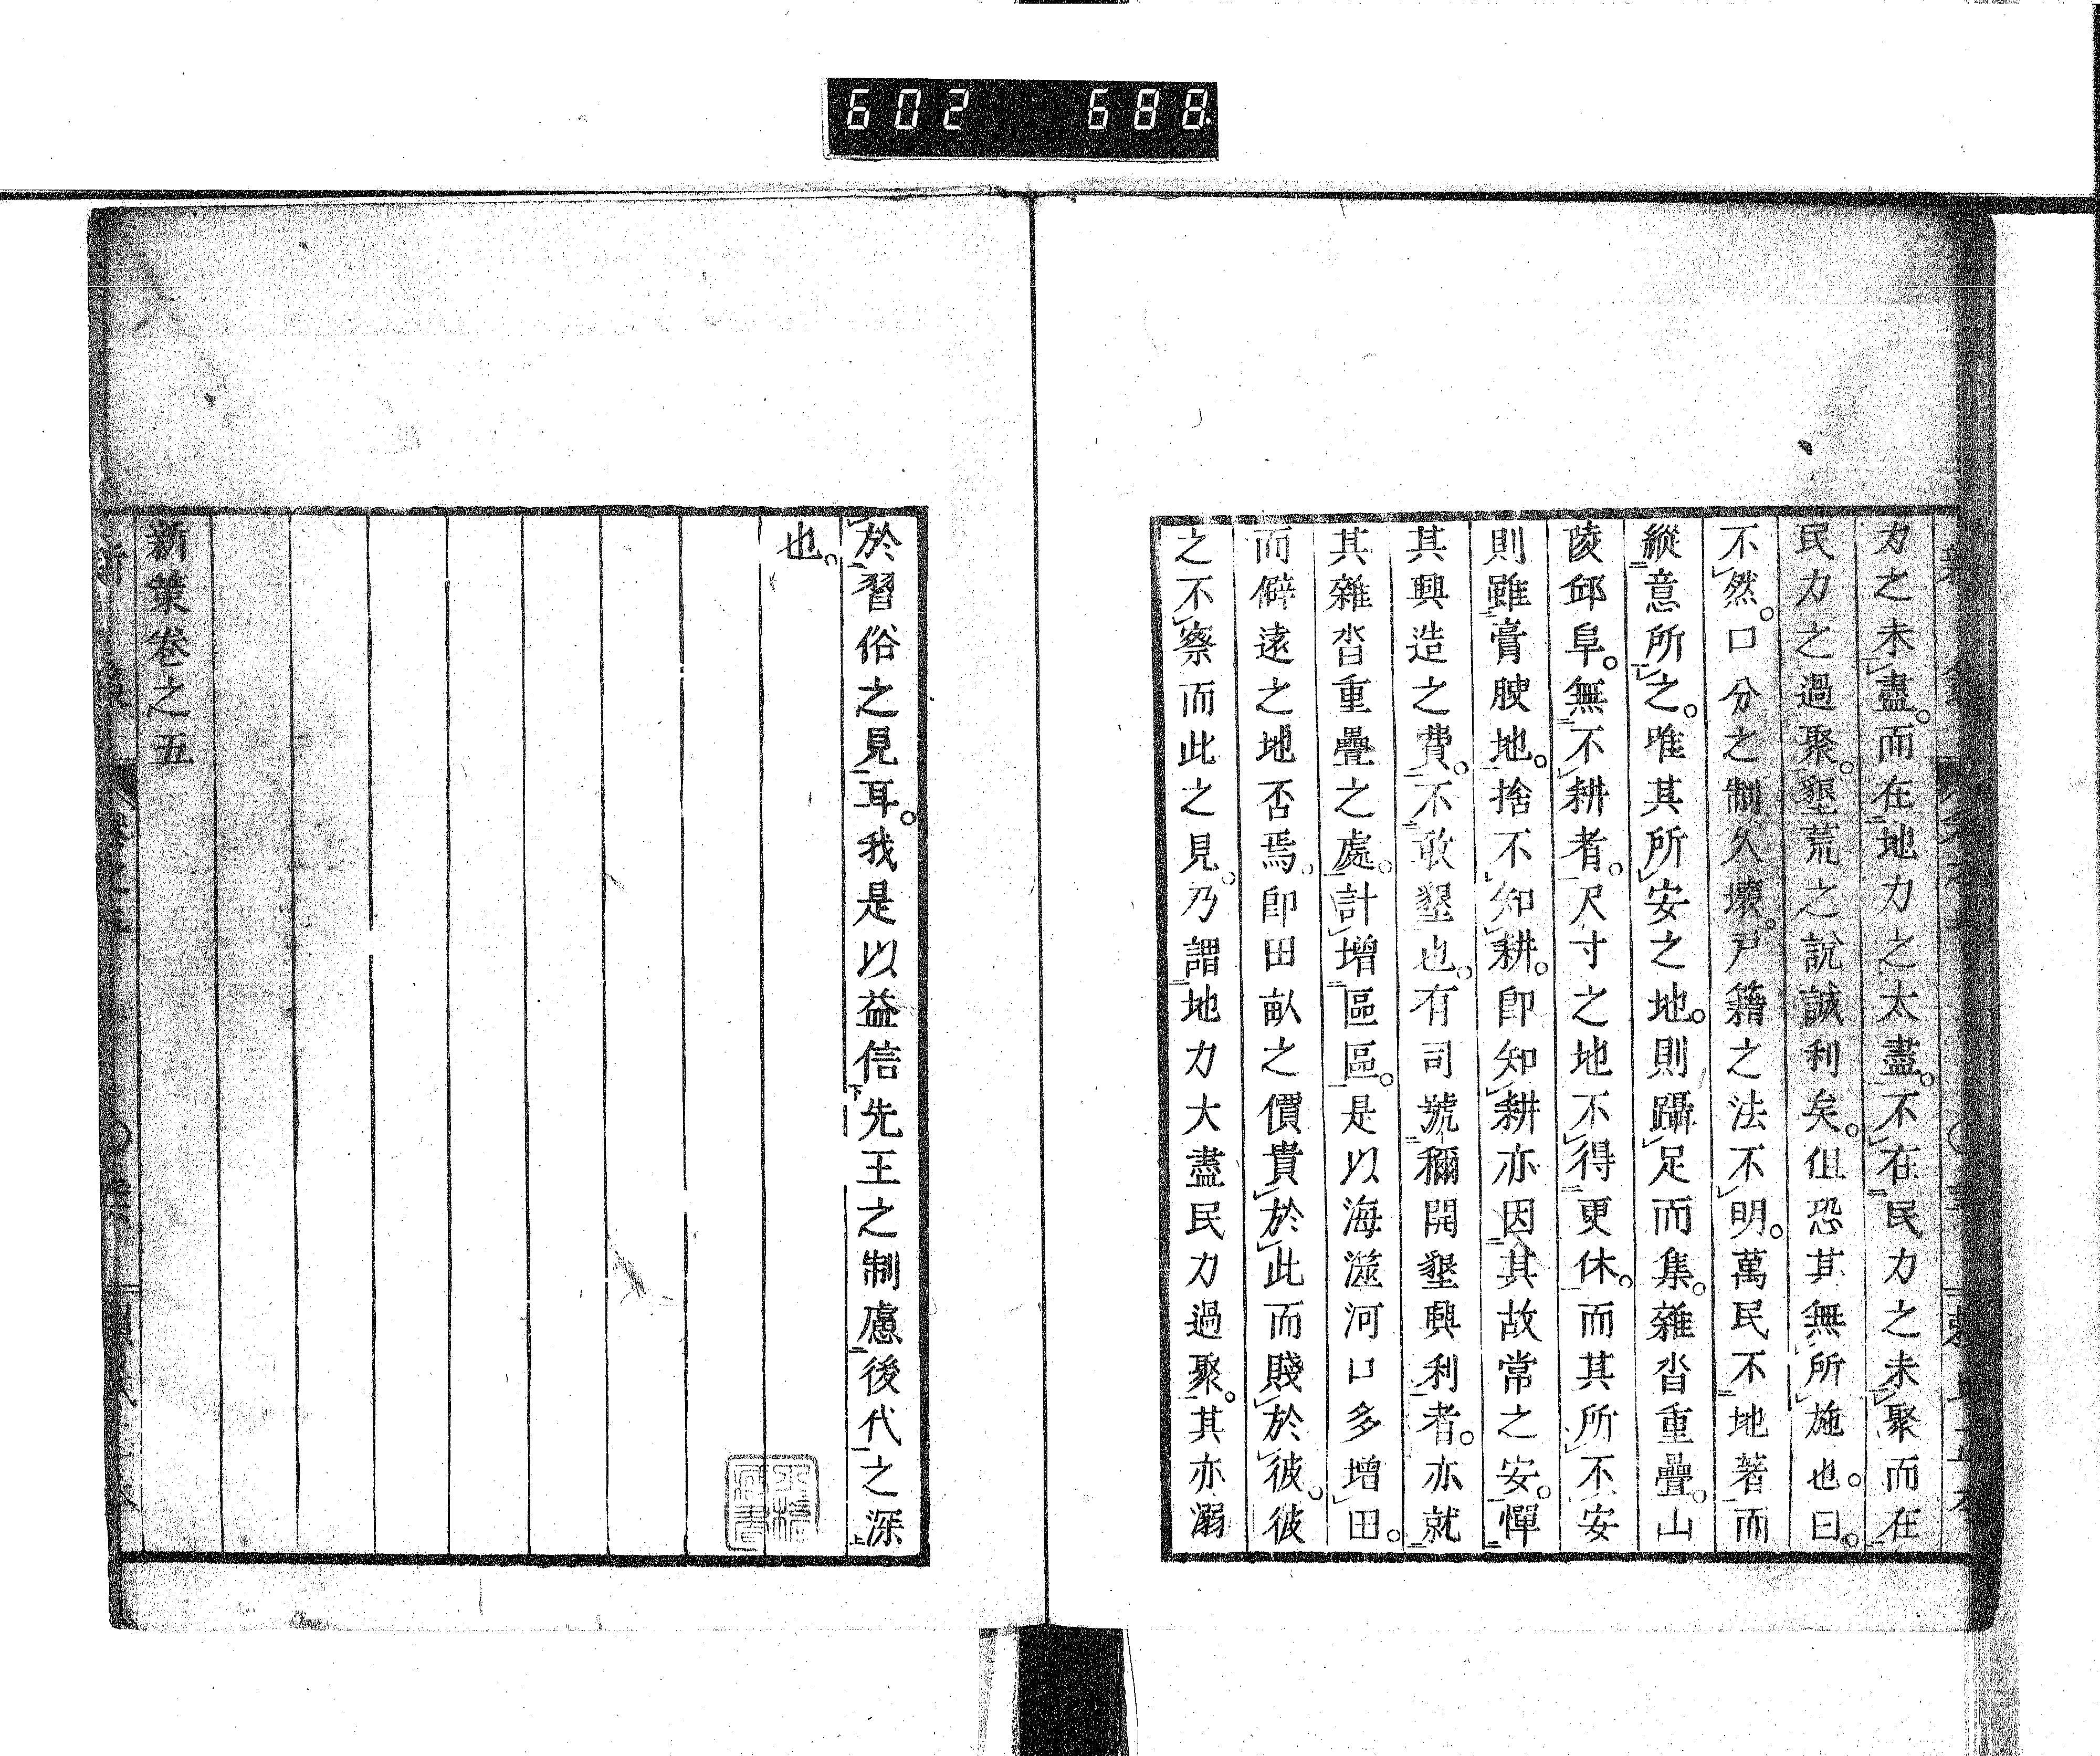 602 688
力之未盡。而在地力之太盡。不在民力之未聚而在
民力之過聚。墾荒之說誠利矣。但恐其無所施也。曰。
不然。口分之制久壞。戶籍之法不明。萬民不地著而
縱意所之。唯其所安之地。則躡足而集。雜沓重疊。山
陵邱阜。無不耕者。尺寸之地不得更休。而其所不安
則雖膏腴地。捨不知耕。卽知耕亦因其故常之安。憚
其興造之費。不敢墾也。有司號稱開墾興利者。亦就
其雜沓重疊之處。計增區區。是以海澨河口多增田。
而僻遠之地否焉。卽田畝之價貴於此而賤於彼。彼
之不察而此之見。乃謂地力大盡民力過聚。其亦溺
於習俗之見耳。我是以益信先王之制慮後代之深
也。
新策卷之五